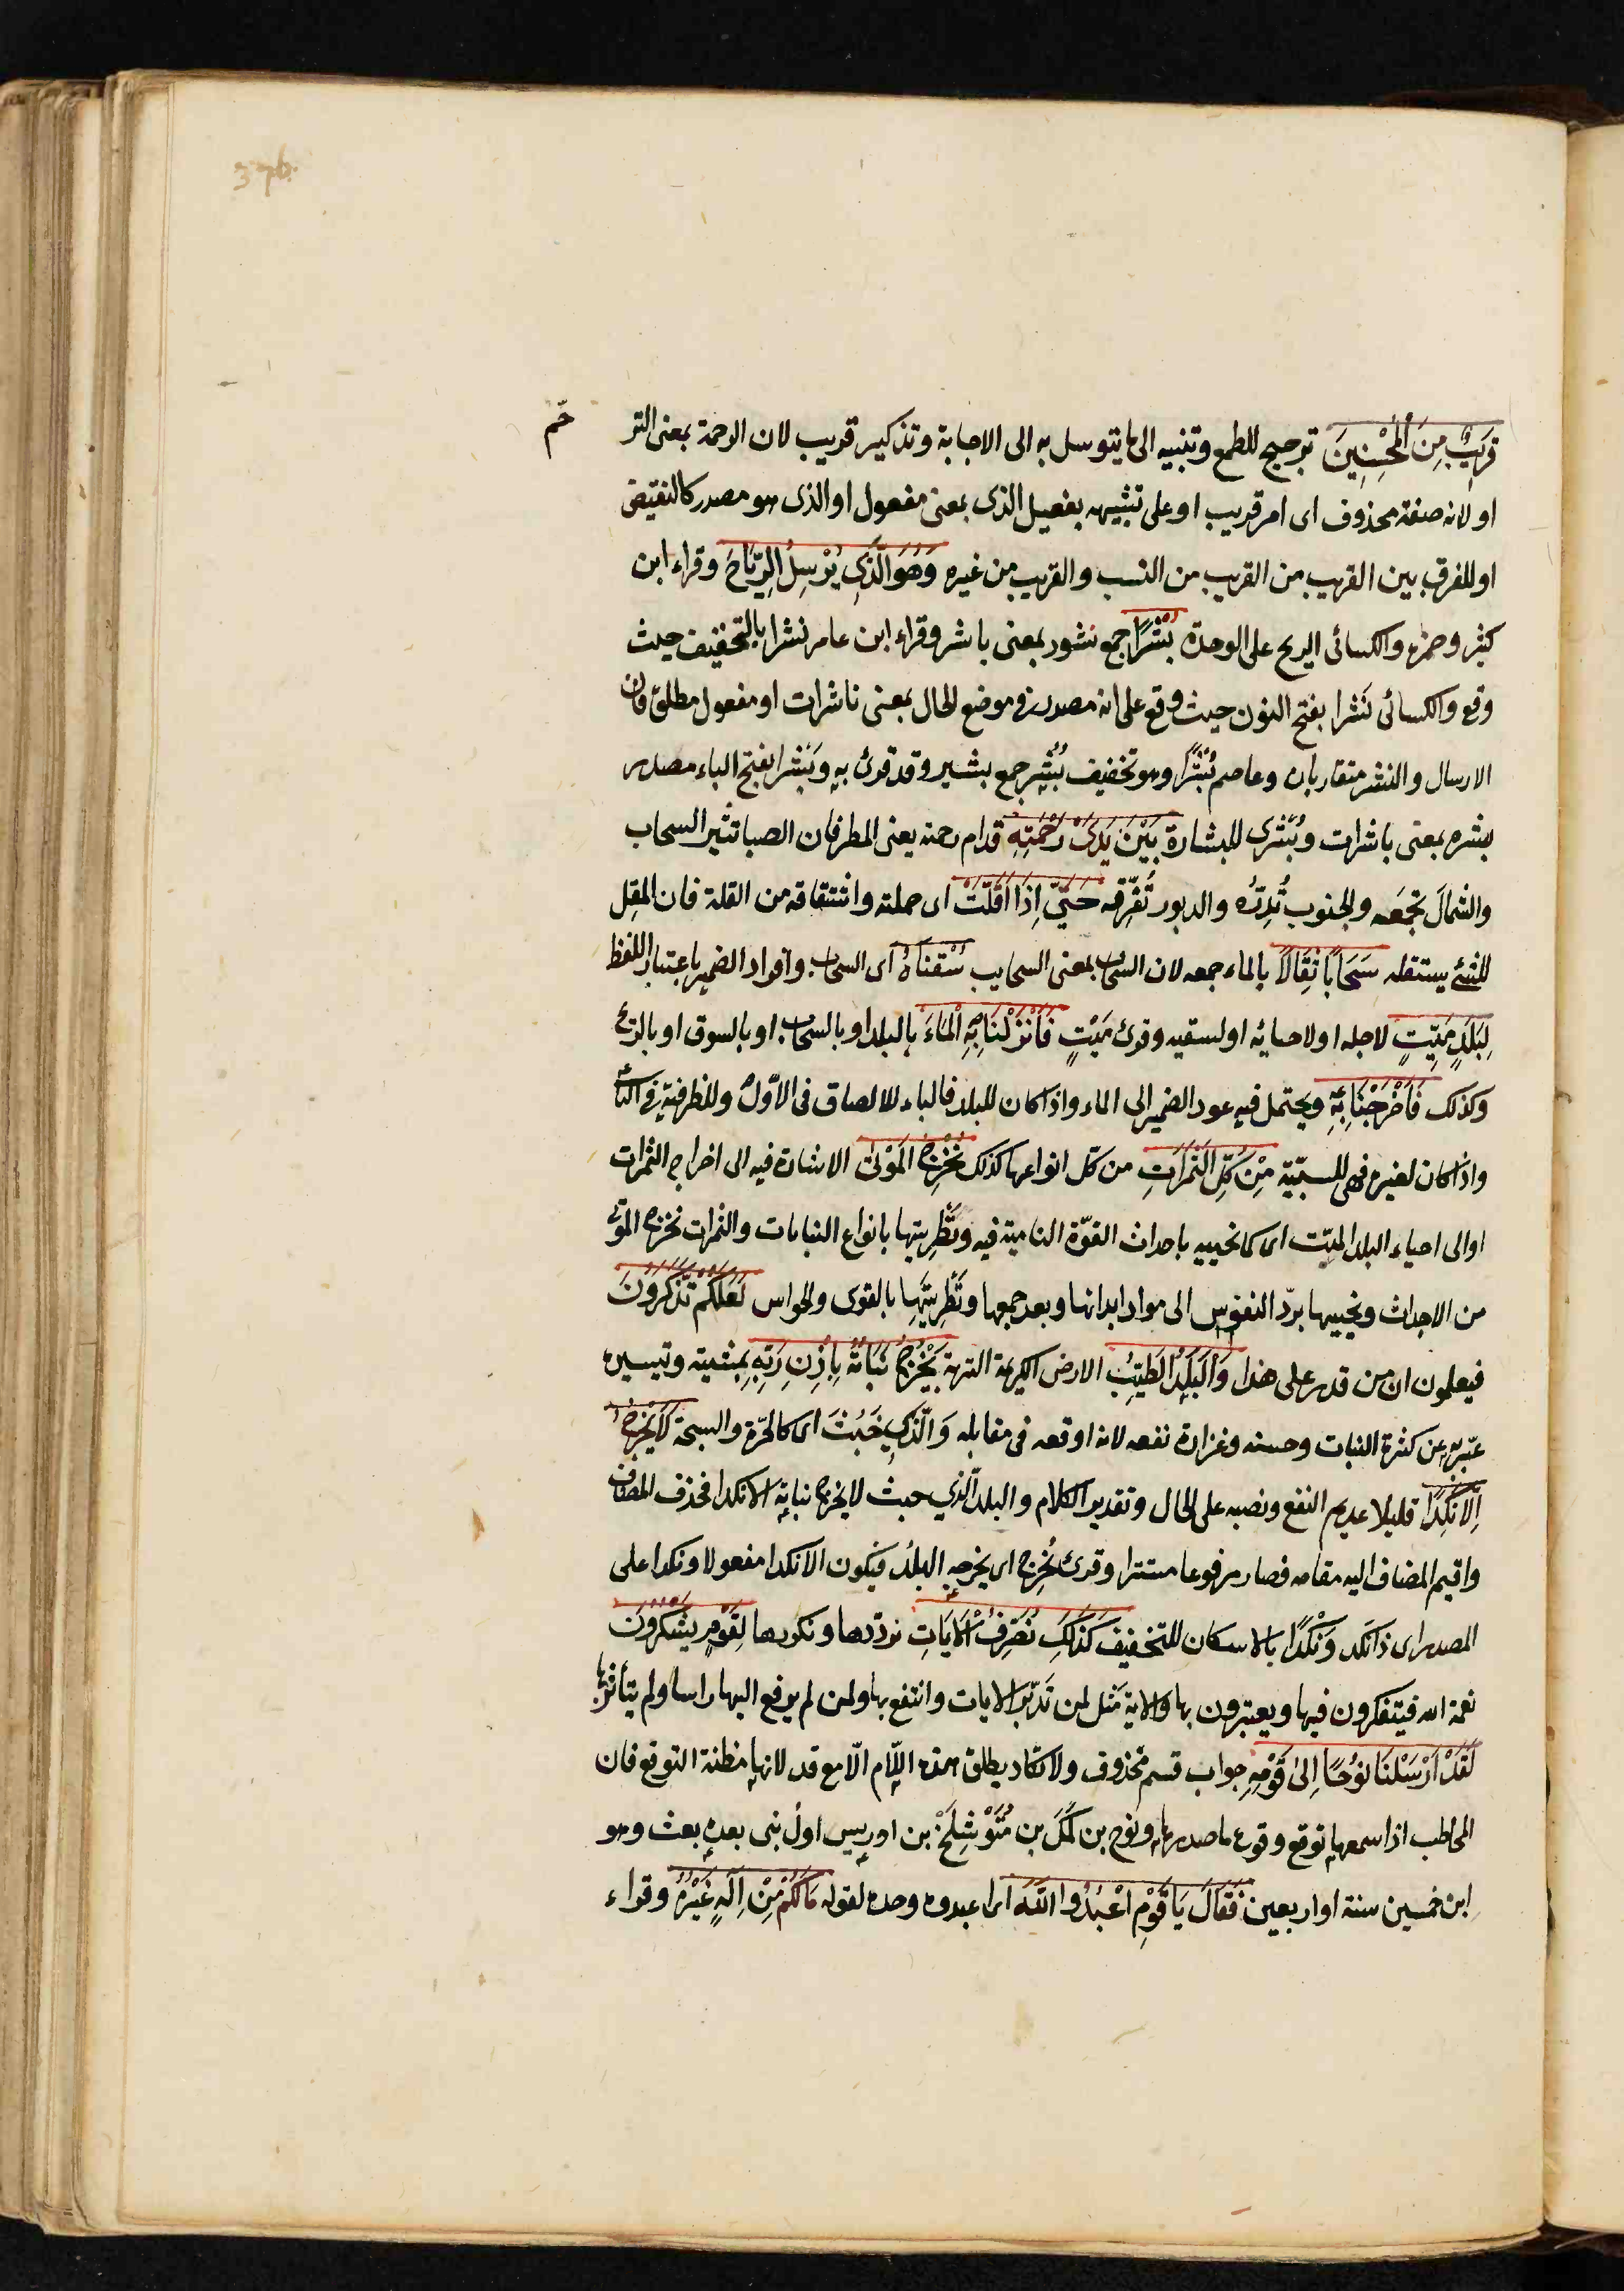 376.
قَرِيبٌ مِنَ الْمُحْسِنِينَ ترجيح للطمع وتنبيه الى ما يتوسل به الى الاجابة وتذكير قريب لان الرحمة بمعنى التر
حّم
او لانه صفة محذوف اى امر قريب او على تشبيهه بفعيل الذى بمعنى مفعول او الذى هو مصدر كالنقيض
او للفرق بين القريب من القريب من النسب والقريب من غيره وَهُوَ الَّذِى يُرْسِلُ الرِّيَاحَ وقراء ابن
كثير وحمزه والكسائى الريح على الوحدة نُشُرًا جمع نشور بمعنى ناشر وقراء ابن عامر نشرا بالتخفيف حيث
وقع والكسائى نَشرا بفتح النون حيث وقع على انه مصدر فى موضع الحال بمعنى ناشرات او مفعول مطلق فان
الارسال والنشر متقاربان وعاصم بُشْرًا وهو تخفيف بُشُرٍ جمع بشير وقد قرئ به وبَشْرا بفتح الباء مصدر
بشره بمعنى باشرات وبُشْرى للبشارة بَيْنَ يَدَىْ رَحْمَتِهِ قدام رحمته يعنى المطر فان الصبا تثير السحاب
والشمالَ تجمَعه والجنوب تُدِرُّه والدبور تُفرّقه حَتّىَ اِذَا اَقَلَّتْ اى حملته واشتقاقه من القلة فان المقِل
للشئ يستقله سَحَابًا ثِقَالًا بالماء جمعه لان السحاب بمعنى السحايب سُقْنَاهُ اى السحاب وافراد الضمير باعتبار اللفظ
لِبَلَدٍ مَيِّتٍ لاجله او لاحيائه او لسقيه وقرئ مَيْتٍ فَاَنْزَلْنَا بِهِ الْمَاءَ بالبلد او بالسحاب او بالسوق او بالريح
وكذلك فَاَخْرَجْنَا بِهِ ويحتمل فيه عود الضمير الى الماء واذا كان للبلد فالباء للالصاق فى الاوّل وللظرفية فى الثانى
واذا كان لغيره فهى للسببيّة مِنْ كُلِّ الثَّمَرَاتِ من كلّ انواعها كذلك نُخْرِجُ الْمَوْتىَ الاشارة فيه الى اخراج الثمرات
او الى احياء البلد الميّت اى كما نحييه باحداث القوّة النامية فيه وتَطْرِيتها بانواع النباتات والثمرات نخرج الموتى
من الاجداث ونحييها بردّ النفوس الى مواد ابدانها وبعد جمعها وتَطْرِيَتِهِا بالقوى والحواس لَعَلَّكُمْ تَذَكَّرُونَ
فيعلمون ان من قدر على هذا وَالْبَلَدُ الطَيِّبُ الارض الكريمة التربة يَخْرُجُ نَبَاتُهُ بِاِذْنِ رَبِّهِ بمشيته وتيسيره
عبّر به عن كثرة النبات وحسنه وغزارة نفعه لانه اوقعه فى مقابله وَالَّذِى خَبُثَ اى كالحَرّة والسبخة لَا يَخْرُجُ
اِلَّا نَكِدًا قليلا عديم النفع ونصبه على الحال وتقدير الكلام والبلد الذي خبث لا يخرج نباته الا نكدا فحذف المضاف
واقيم المضاف اليه مقامه فصار مرفوعا مستترا وقرئ يُخرِج اى يخرجه البلدُ فيكون الا نكدا مفعولا ونكدا على
المصدر اى ذا نكد ونَكْدًا بالاسكان للتخفيف كَذَلِكَ نُصَرِّفُ الْاٰيَاتِ نردّدها ونكررها لِقَوْمٍ يَشْكُرُونَ
نعمة الله فيتفكرون فيها ويعتبرون بها والاية مَثل لمن تدبّر الايات وانتفع بها ولمن لم يرفع اليها راسا ولم يتأثر بها
لَقَدْ اَرْسَلْنَا نُوحًا اِلىٰ قَوْمِهِ جواب قسم محذوف ولا تكاد يطلق هذه اللّام الّا مع قد لانها مظنة التوقع فان
المخاطب اذا سمعها توقع وقوع ما صدر بها ونوح بن لَمَكَ بن مُتَوْشِلَخَ بن ادريس اول نبى بعده بعث وهو
ابن خمسين سنة او اربعين فَقَالَ يَا قَوْمِ اعْبُدُوا اللَّهَ اى اعبدوه وحده لقوله مَا لَكُمْ مِنْ اِلَهٍ غَيْرُهُ وقراء